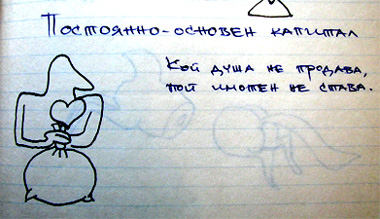 Постоянно-основен капитал
Кой душа не продава,
той имотен не става.